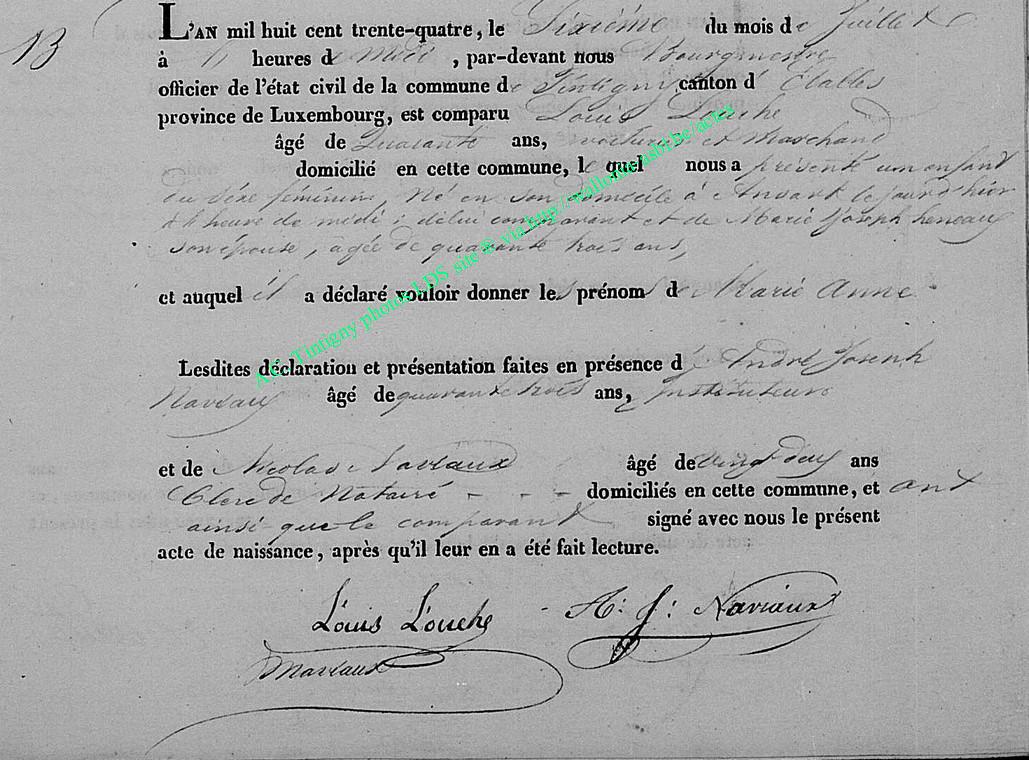 13
L'AN mil huit cent trente-quatre, le Sixième du mois de Juillet
à heures de Midi, par-devant nous Bourgmestre
officier de l'état civil de la commune de Tintigny, canton d'Étalles
province de Luxembourg, est comparu Louis Louche
âgé de Quarante ans, et Marchand
domicilié en cette commune, lequel nous a présenté un enfant
du sexe féminin, Né en son domicile à Ansart le jour d'hier
heure de midi : de lui comparant et de Marie Joseph
son épouse, âgée de quarante trois ans,
et auquel il a déclaré vouloir donner les prénoms de Marie Anne
Lesdites déclaration et présentation faites en présence d'André Joseph
Naviaux âgé de quarante trois ans, Instituteur
et de Nicolas Naviaux âgé de vingt deux ans
Clerc de Notaire - - - domiciliés en cette commune, et ont
ainsi que le comparant signé avec nous le présent
acte de naissance, après qu'il leur en a été fait lecture.
Louis Louche A: J: Naviaux
Naviaux
Tintigny photos LDS site © via http://wallonia.asbl.be/actes